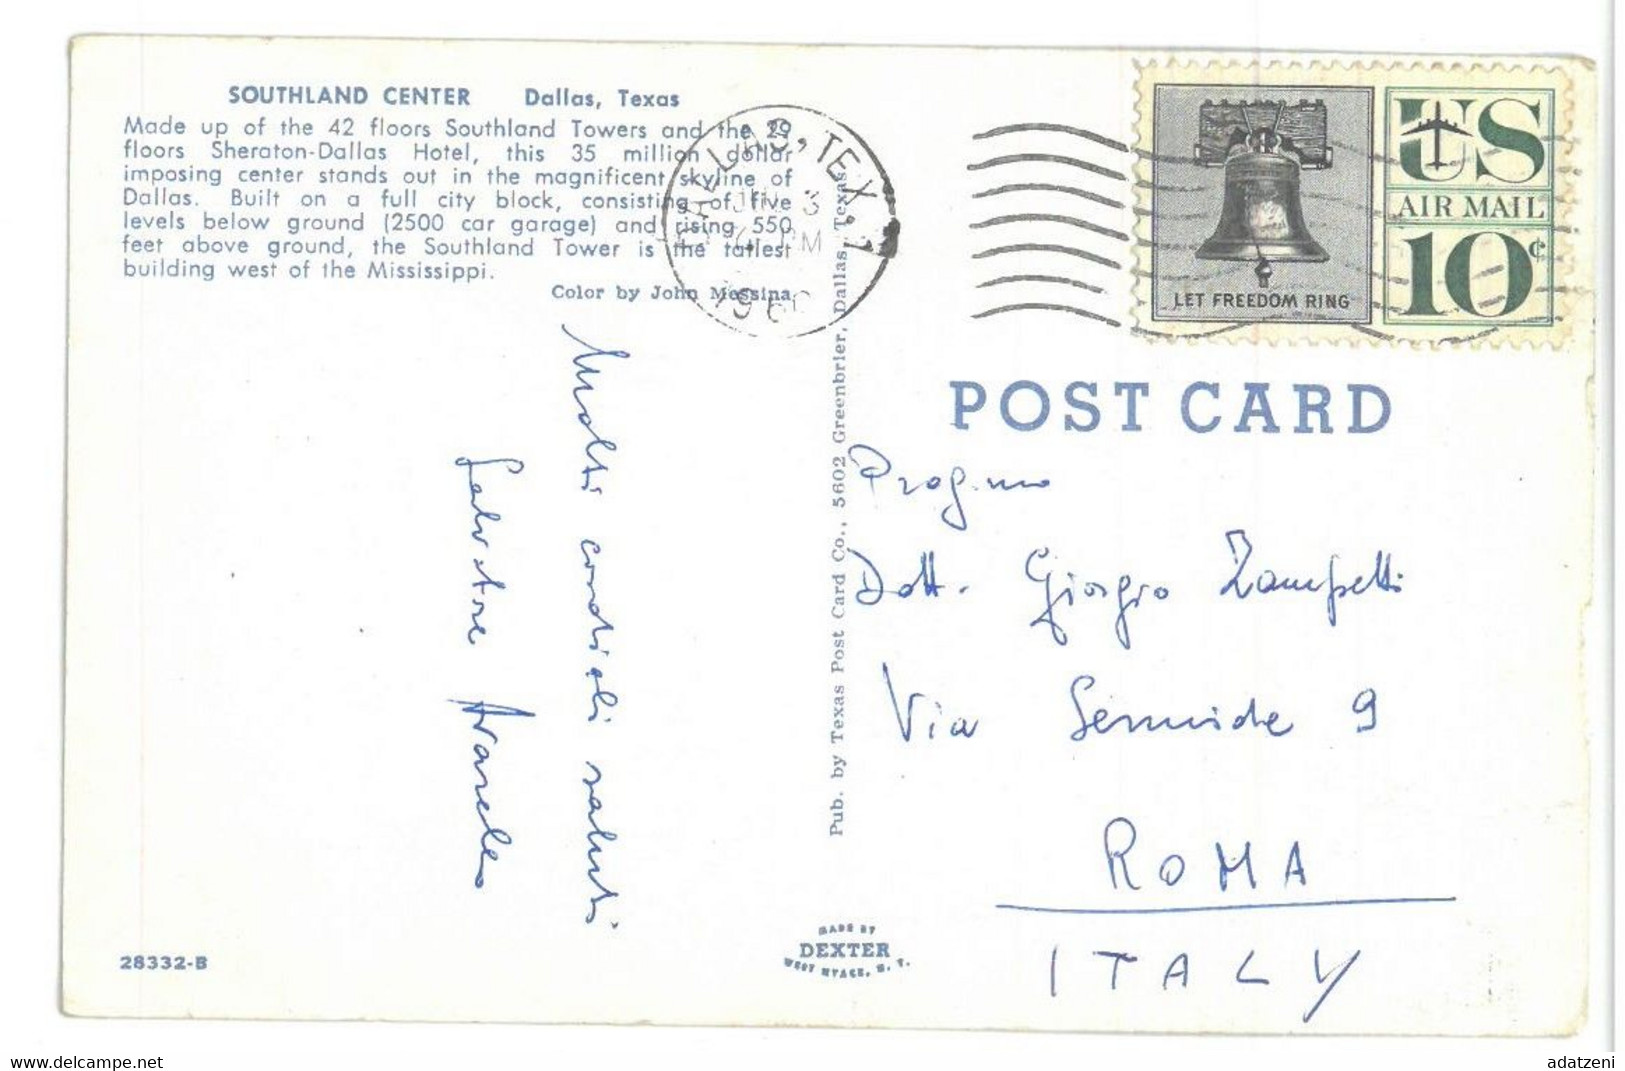 SOUTHLAND CENTER Dallas, Texas
Made up of the 42 floors Southland Towers and the 29
floors Sheraton-Dallas Hotel, this 35 million dollar
imposing center stands out in the magnificent skyline of
Dallas. Built on a full city block, consisting of five
levels below ground (2500 car garage) and rising 550
feet above ground, the Southland Tower is the tallest
building west of the Mississippi.
Color by John Messina
DALLAS, TEX. 1
3
PM
US
AIR MAIL
10¢
LET FREEDOM RING
POST CARD
Pub. by Texas Post Card Co., 5602 Greenbrier, Dallas, Texas
Molti cordiali saluti
Salvatore
Dott. Giorgio Zampetti
Via Sermide 9
ROMA
ITALY
MADE BY
DEXTER
WEST NYACK, N. Y.
28332-B
www.delcampe.net
adatzeni